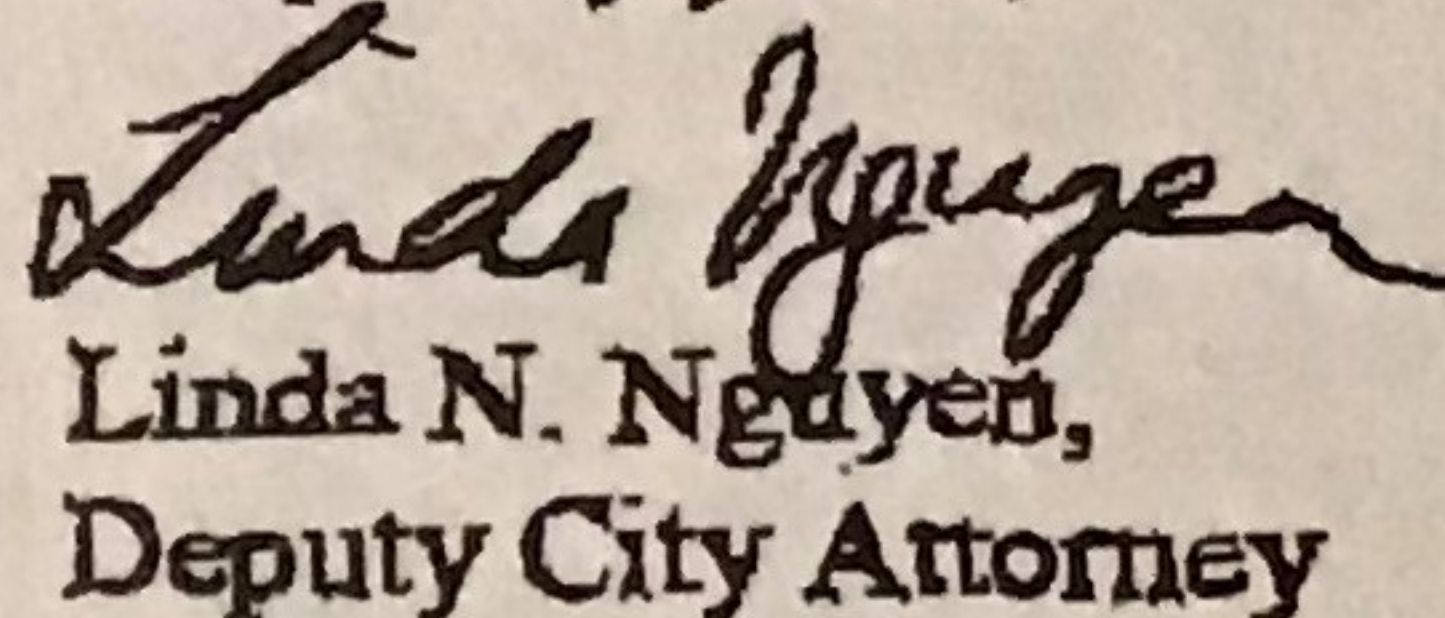 Linda Nguyen
Linda N. Nguyen,
Deputy City Attorney